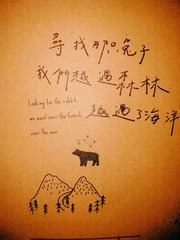 尋找那隻兔子
我們越過森林
Looking for the rabbit,
we went over the forest,
越過了海洋
over the sea